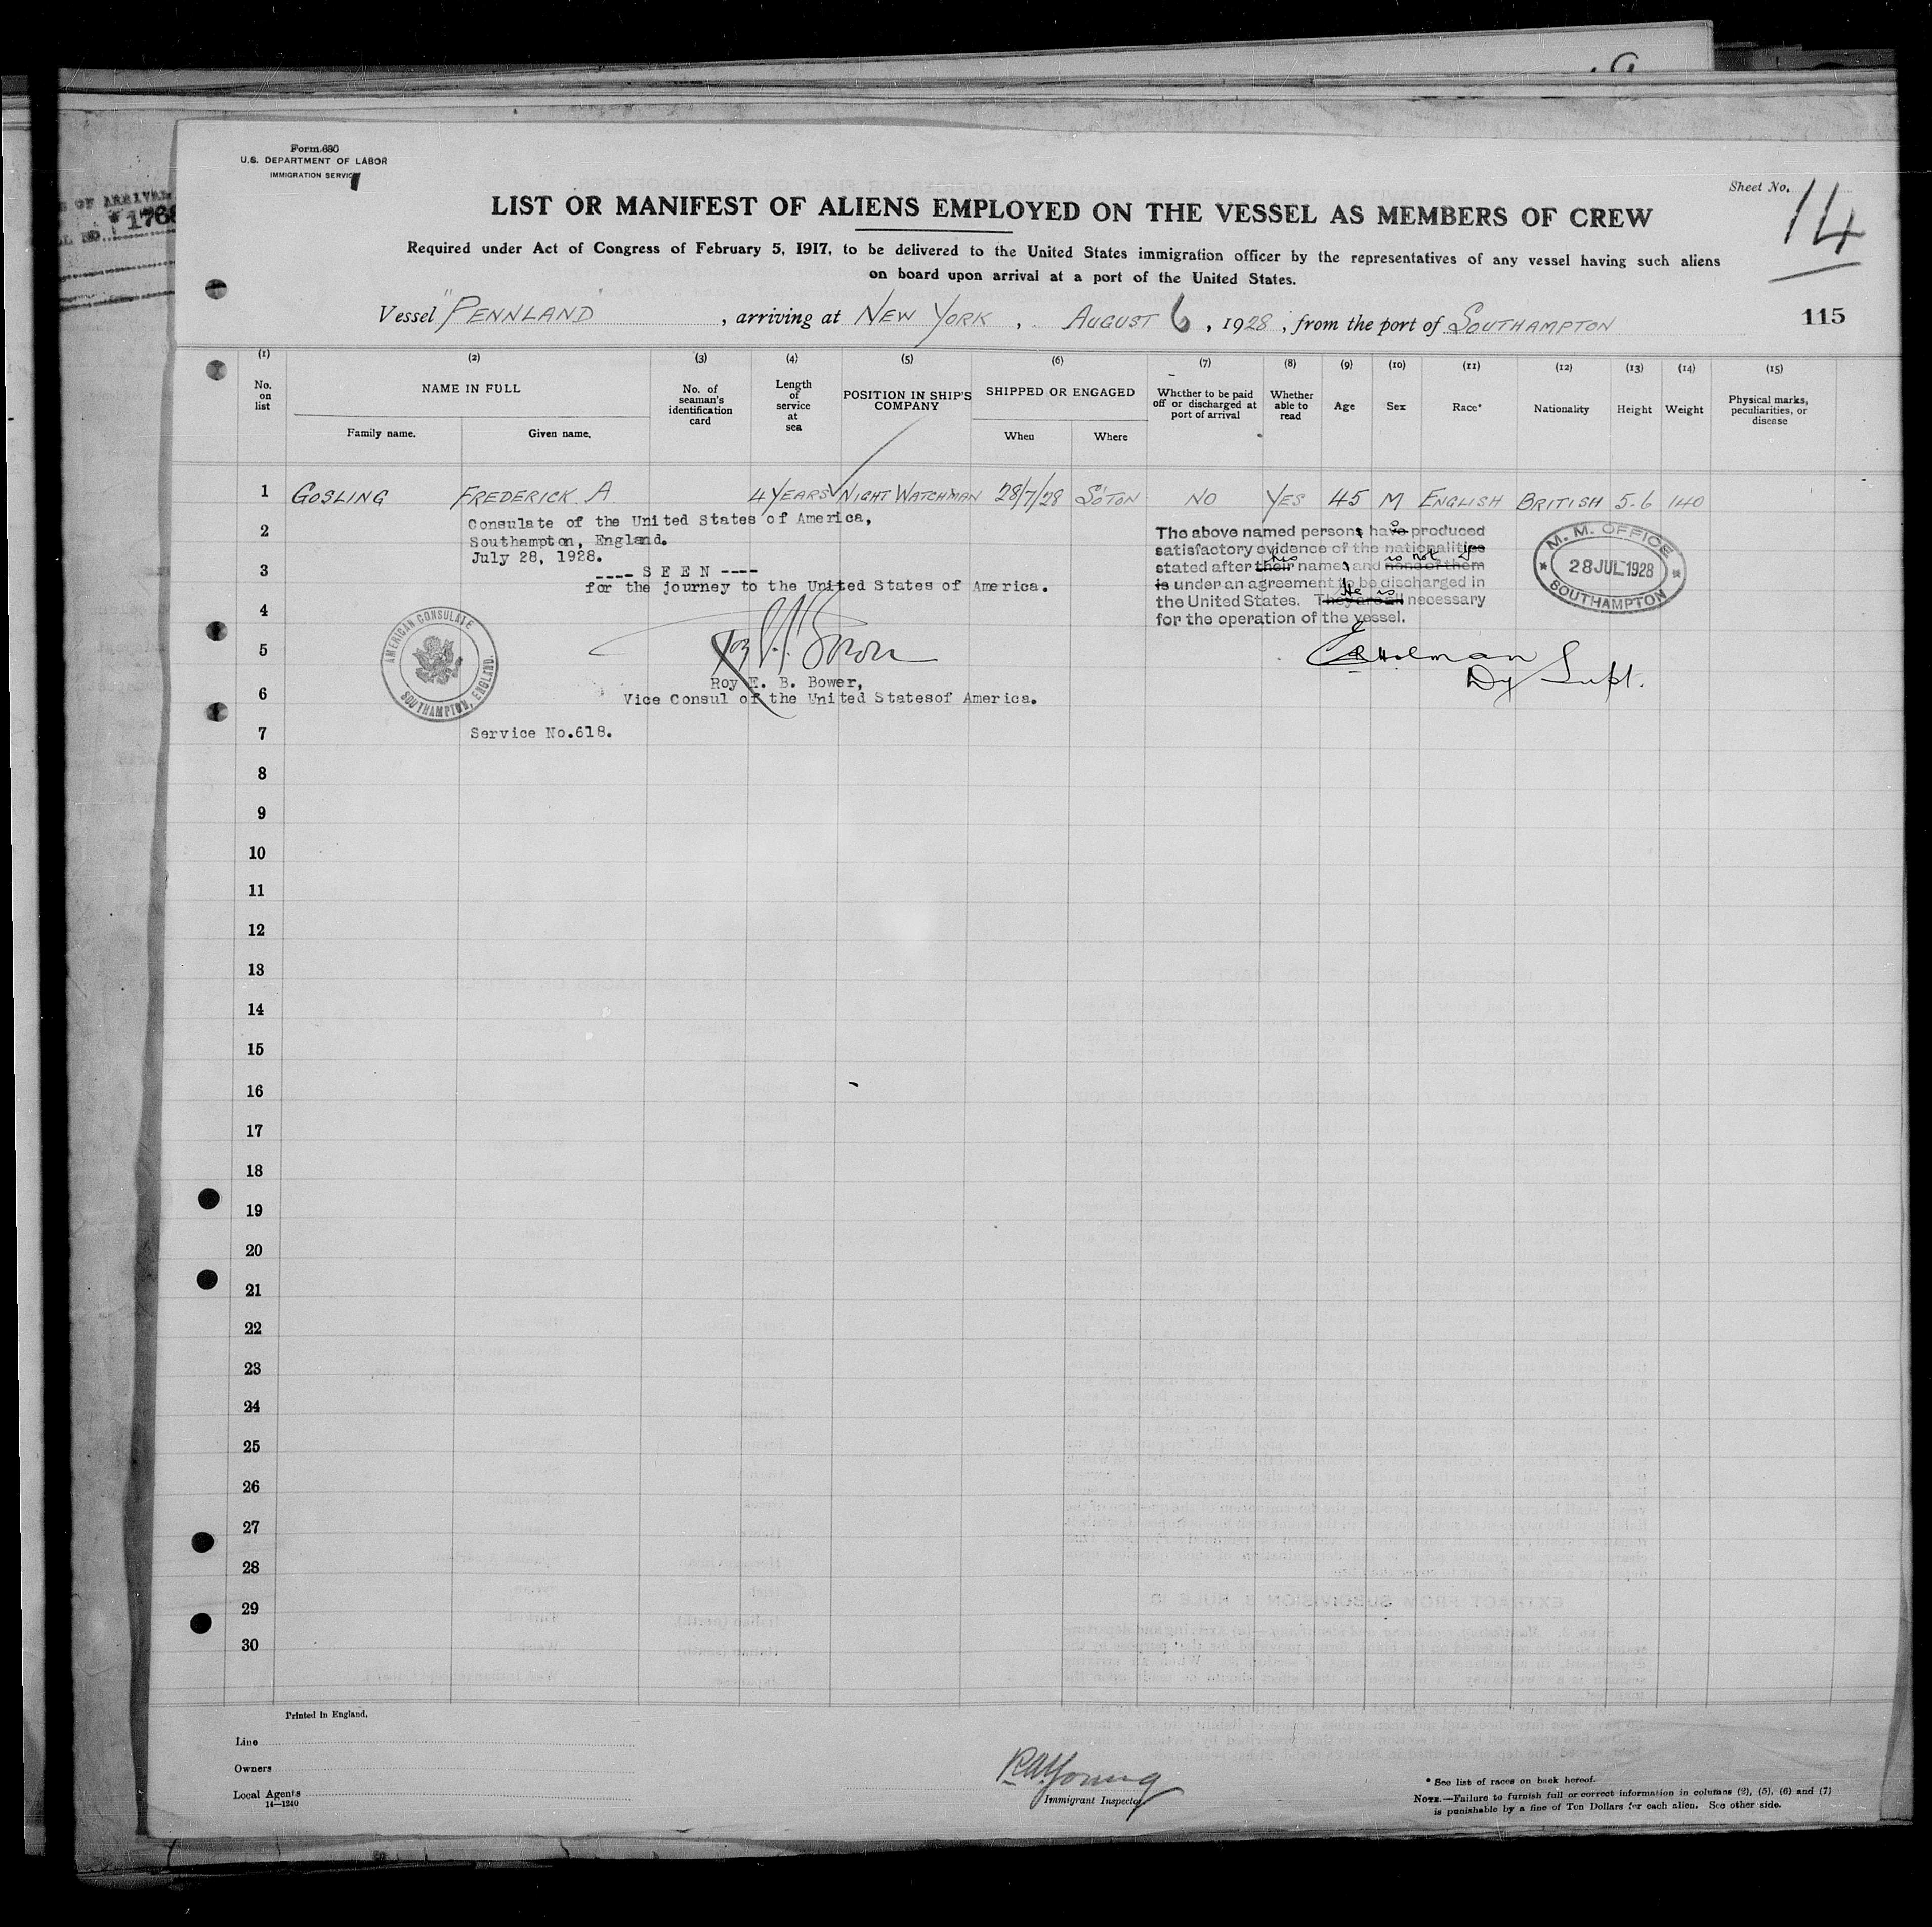 OF ARRIVAL
1768
Form 680
U.S. DEPARTMENT OF LABOR
IMMIGRATION SERVICE
Sheet No. 14
LIST OR MANIFEST OF ALIENS EMPLOYED ON THE VESSEL AS MEMBERS OF CREW
Required under Act of Congress of February 5, 1917, to be delivered to the United States immigration officer by the representatives of any vessel having such aliens
on board upon arrival at a port of the United States.
Vessel "PENNLAND", arriving at NEW YORK, AUGUST 6, 1928, from the port of SOUTHAMPTON
115
(1) (2) (3) (4) (5) (6) (7) (8) (9) (10) (11) (12) (13) (14) (15)
No. on list
NAME IN FULL
Family name. Given name.
No. of seaman's identification card
Length of service at sea
POSITION IN SHIP'S COMPANY
SHIPPED OR ENGAGED
When Where
Whether to be paid off or discharged at port of arrival
Whether able to read
Age
Sex
Race*
Nationality
Height
Weight
Physical marks, peculiarities, or disease
1 GOSLING FREDERICK A 4 YEARS NIGHT WATCHMAN 28/7/28 SO'TON NO YES 45 M ENGLISH BRITISH 5.6 140
2
3
4
5
6
7
8
9
10
11
12
13
14
15
16
17
18
19
20
21
22
23
24
25
26
27
28
29
30
Consulate of the United States of America,
Southampton, England.
July 28, 1928.
---- S E E N ----
for the journey to the United States of America.
Roy E. B. Bower,
Vice Consul of the United Statesof America.
Service No.618.
AMERICAN CONSULATE
SOUTHAMPTON, ENGLAND.
The above named persons have produced
satisfactory evidence of the nationalities
his is not
stated after their names and none of them
is under an agreement to be discharged in
He is
the United States. They are all necessary
for the operation of the vessel.
Dy Supt.
M. M. OFFICE
28 JUL 1928
SOUTHAMPTON
Printed in England.
Line
Owners
Local Agents
14—1240
R A Young
Immigrant Inspector
* See list of races on back hereof.
NOTE.—Failure to furnish full or correct information in columns (2), (5), (6) and (7)
is punishable by a fine of Ten Dollars for each alien. See other side.